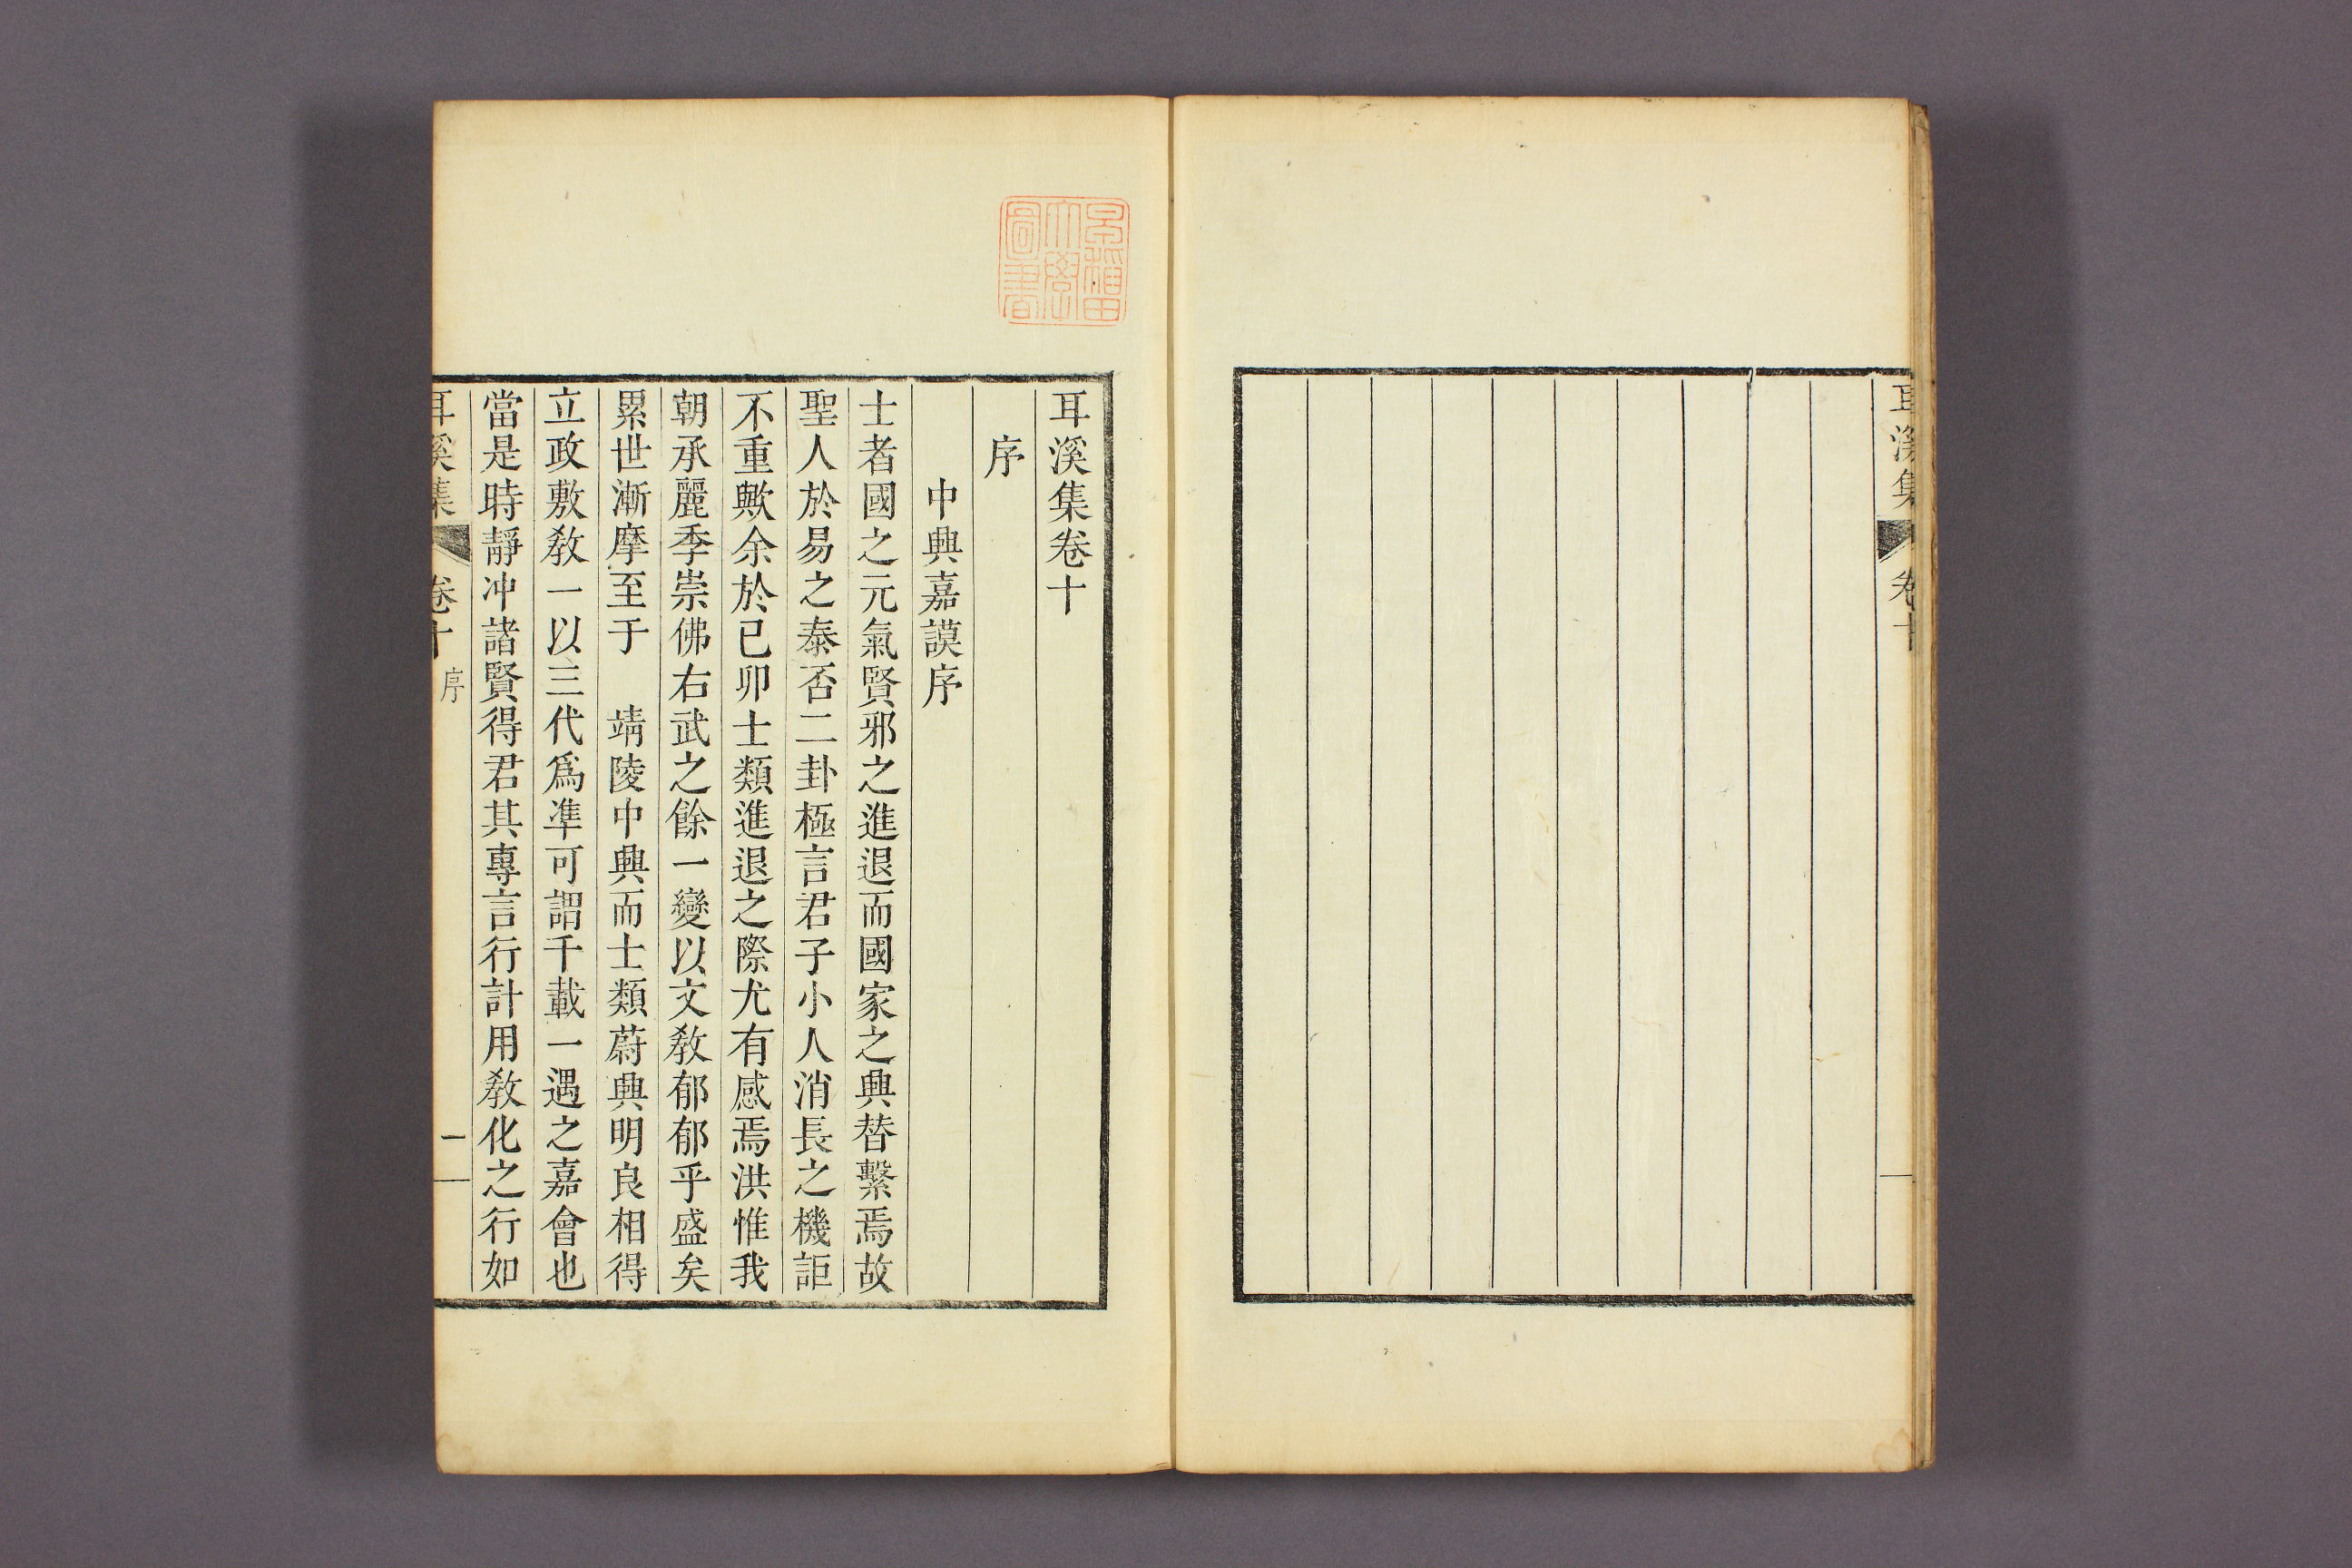 耳溪集
卷十
早稲田
大學
圖書
耳溪集卷十
序
中興嘉謨序
士者國之元氣賢邪之進退而國家之興替繫焉故
聖人於易之泰否二卦極言君子小人消長之機詎
不重歟余於已卯士類進退之際尤有感焉洪惟我
朝承麗季崇佛右武之餘一變以文敎郁郁乎盛矣
累世漸摩至于　靖陵中興而士類蔚興明良相得
立政敷敎一以三代爲準可謂千載一遇之嘉會也
當是時靜冲諸賢得君其專言行計用敎化之行如
耳溪集
卷十
序
一